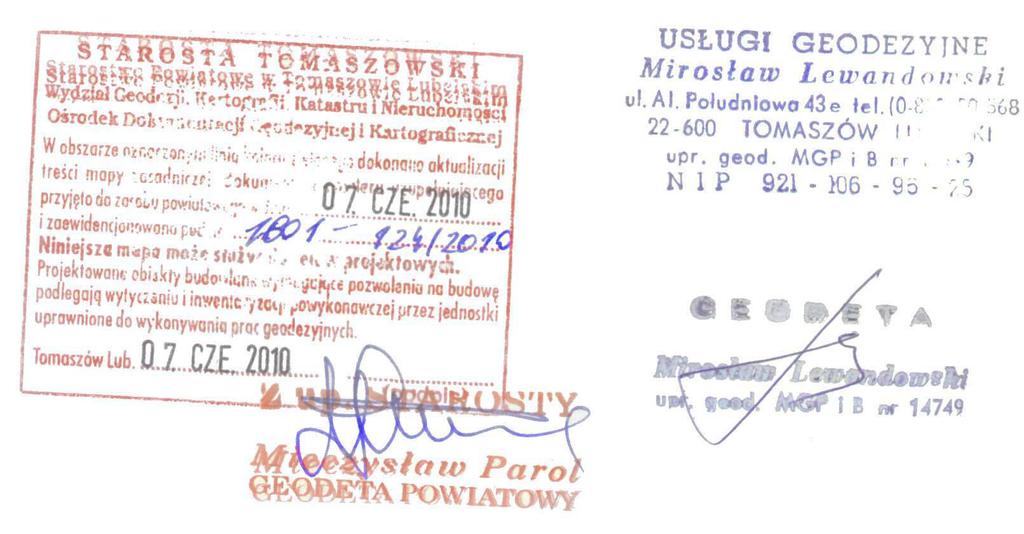 STAROSTA TOMASZOWSKI
Starostwo Powiatowe w Tomaszowie Lubelskim
Wydział Geodezji, Kartografii, Katastru i Nieruchomości
Ośrodek Dokumentacji Geodezyjnej i Kartograficznej
W obszarze oznaczonym linią dokonano aktualizacji
treści mapy zasadniczej
przyjęto do zasobu 0 7. CZE. 2010
i zaewidencjonowano pod 1601 - 124/2010
Niniejsza mapa może służyć projektowych.
Projektowane obiekty budowlane wymagające pozwolenia na budowę
podlegają wytyczeniu i inwentaryzacji powykonawczej przez jednostki
uprawnione do wykonywania prac geodezyjnych.
Tomaszów Lub. 0 7. CZE. 2010
Z up. STAROSTY
Mieczysław Parol
GEODETA POWIATOWY
USŁUGI GEODEZYJNE
Mirosław Lewandowski
ul. Al. Południowa 43e tel. (0-8 568
22-600 TOMASZÓW
upr. geod. MGP i B nr
NIP 921 - 106 - 95 - 25
GEODETA
Mirosław Lewandowski
upr. geod. MGP i B nr 14749